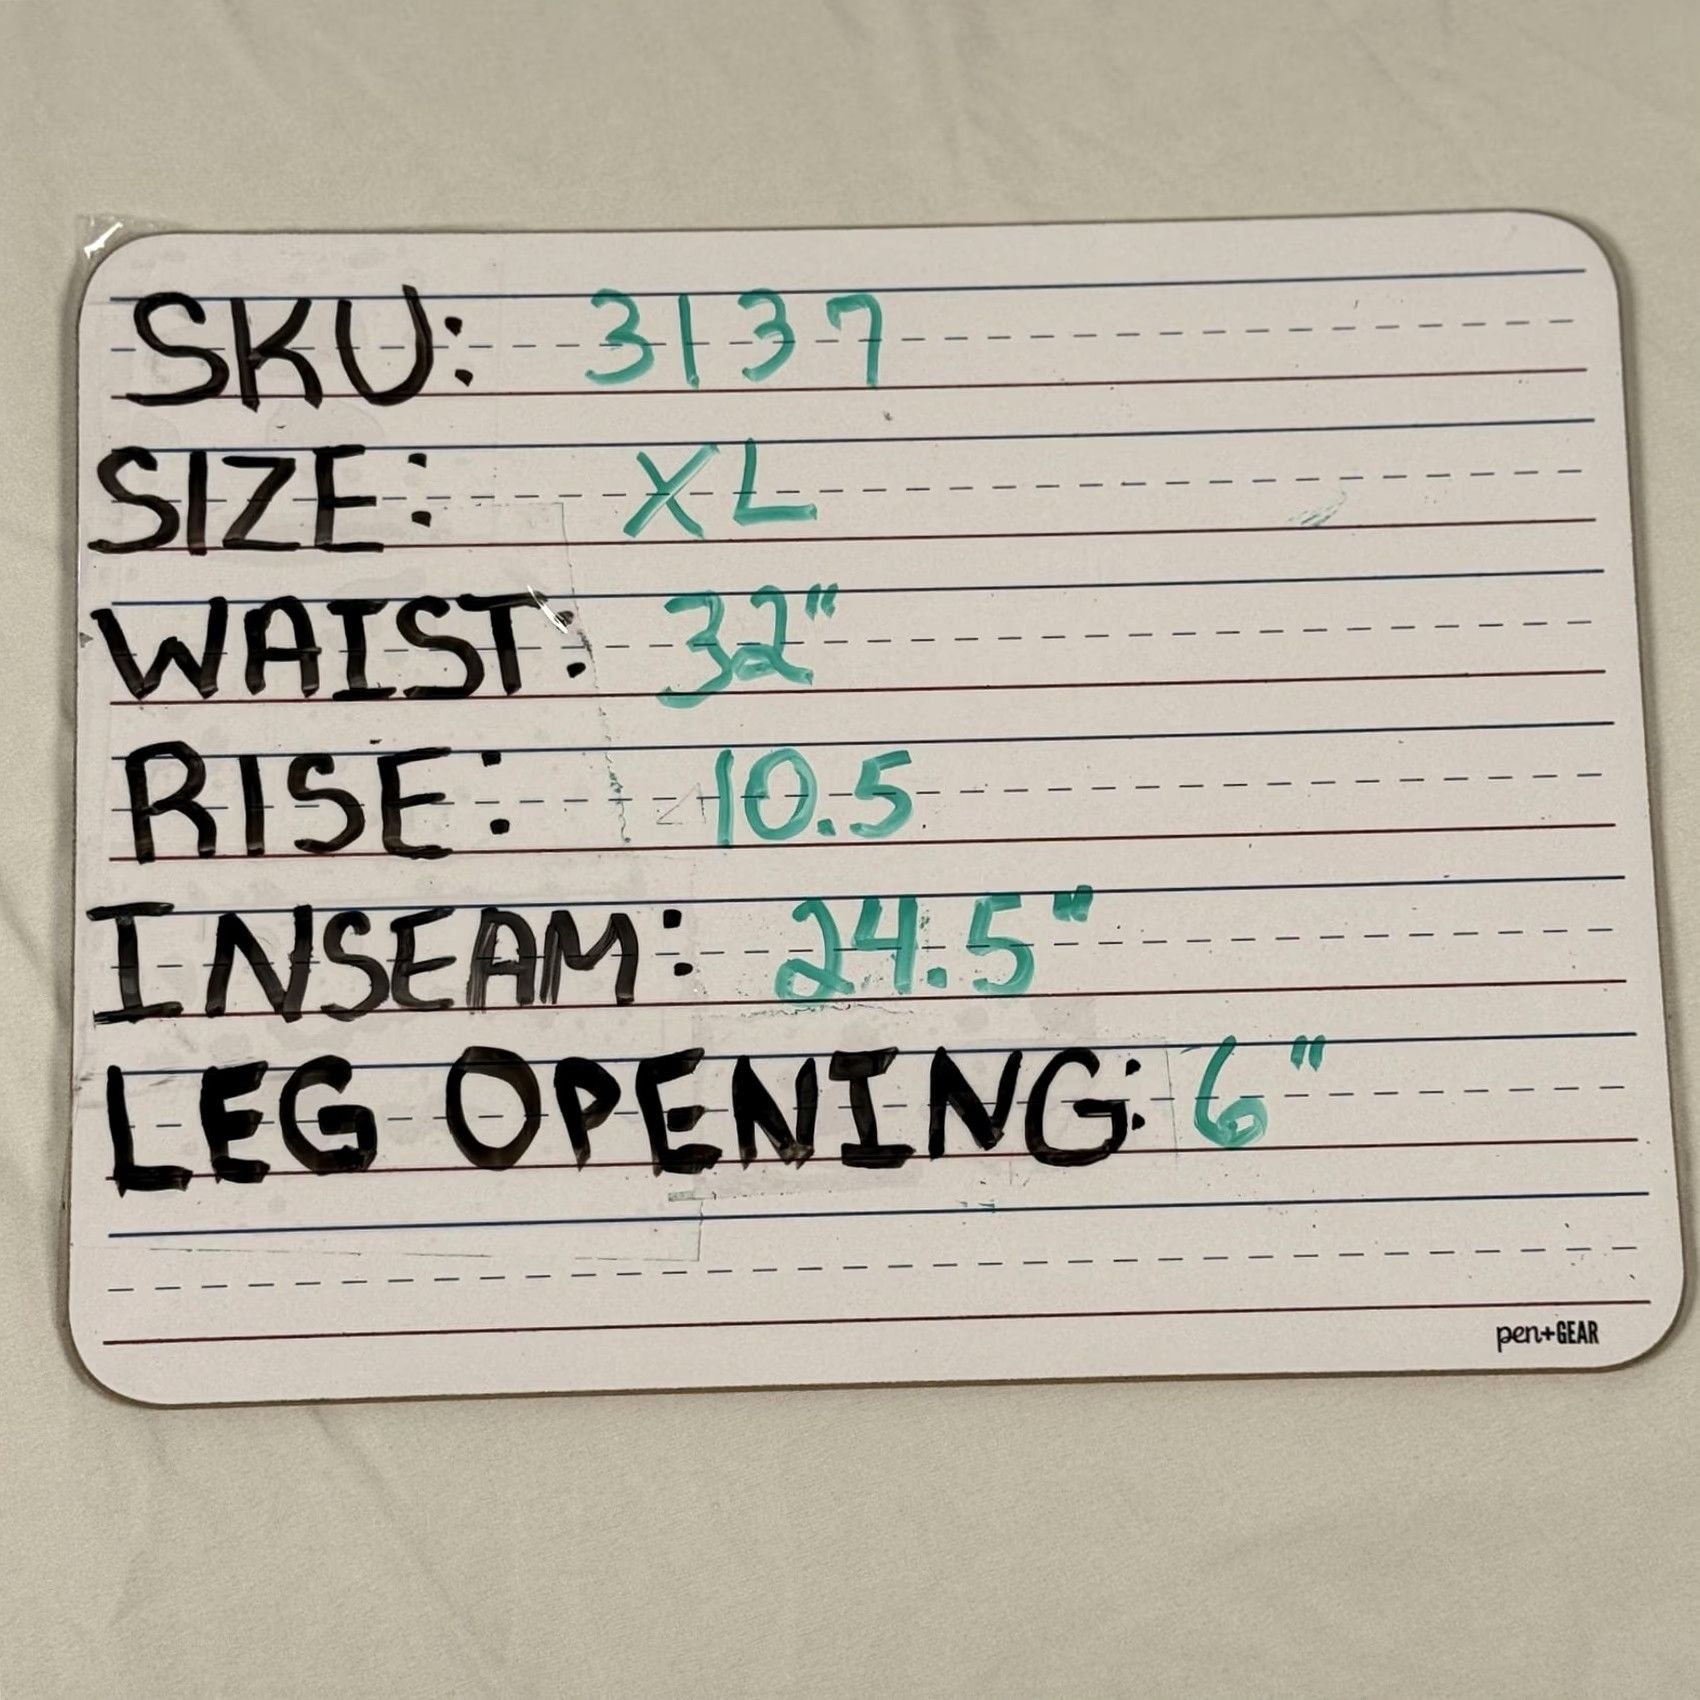 SKU: 3137
SIZE: XL
WAIST: 32"
RISE: 10.5
INSEAM: 24.5"
LEG OPENING: 6"
pen+GEAR